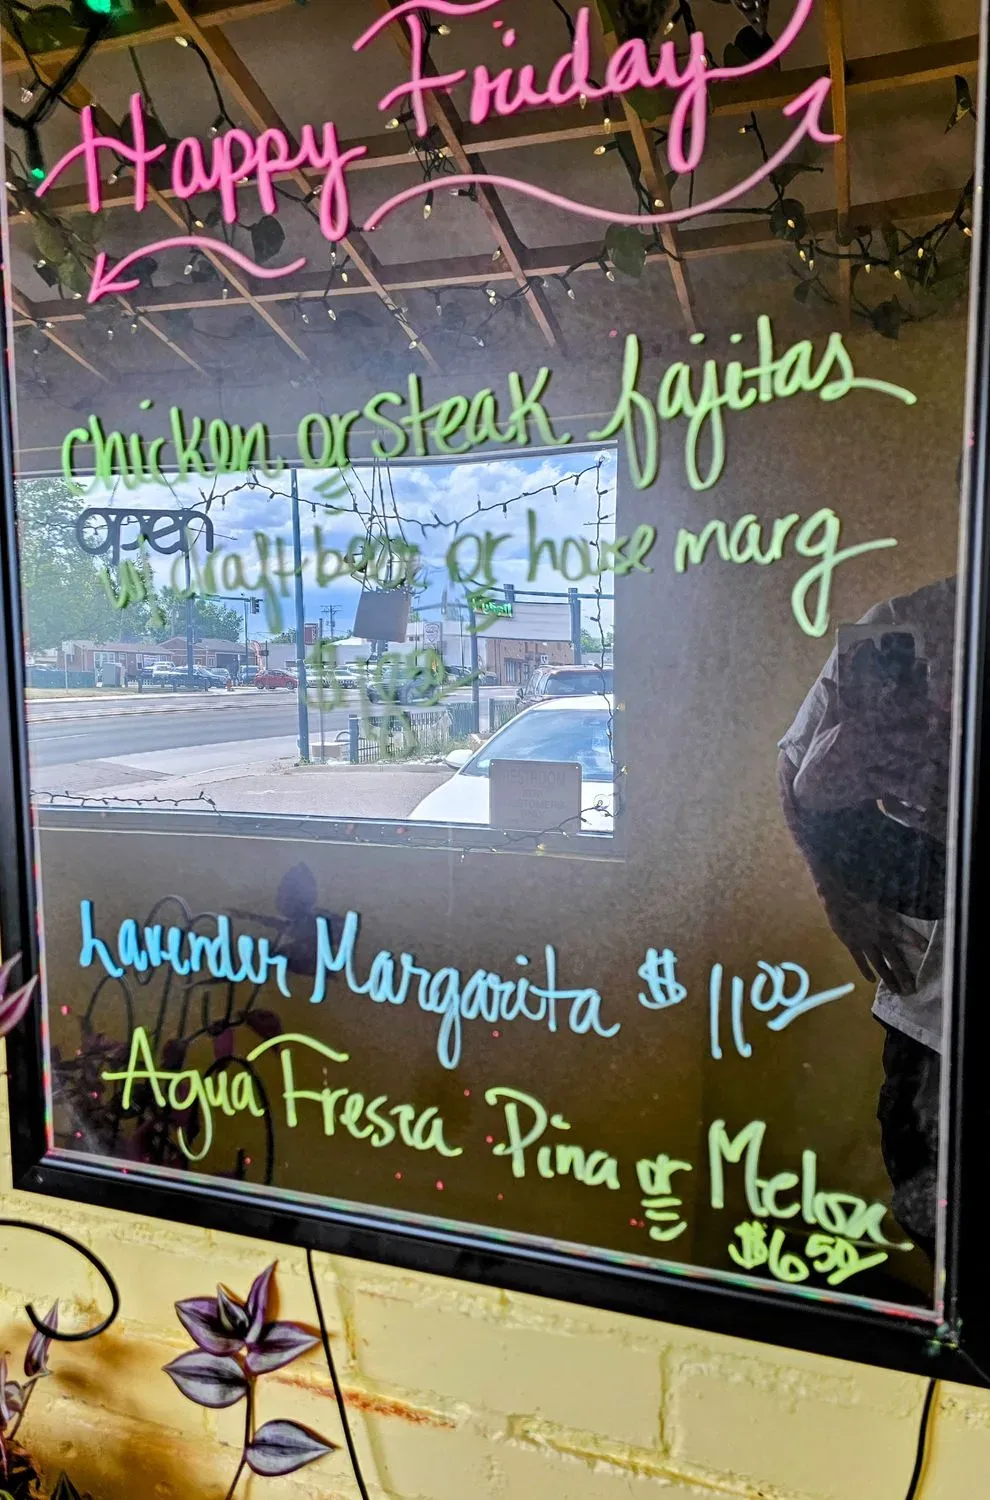 Happy Friday
chicken or steak fajitas
w/ draft beer or house marg
open
Lavender Margarita $11.00
Agua Fresca Pina or Melon
$6.50